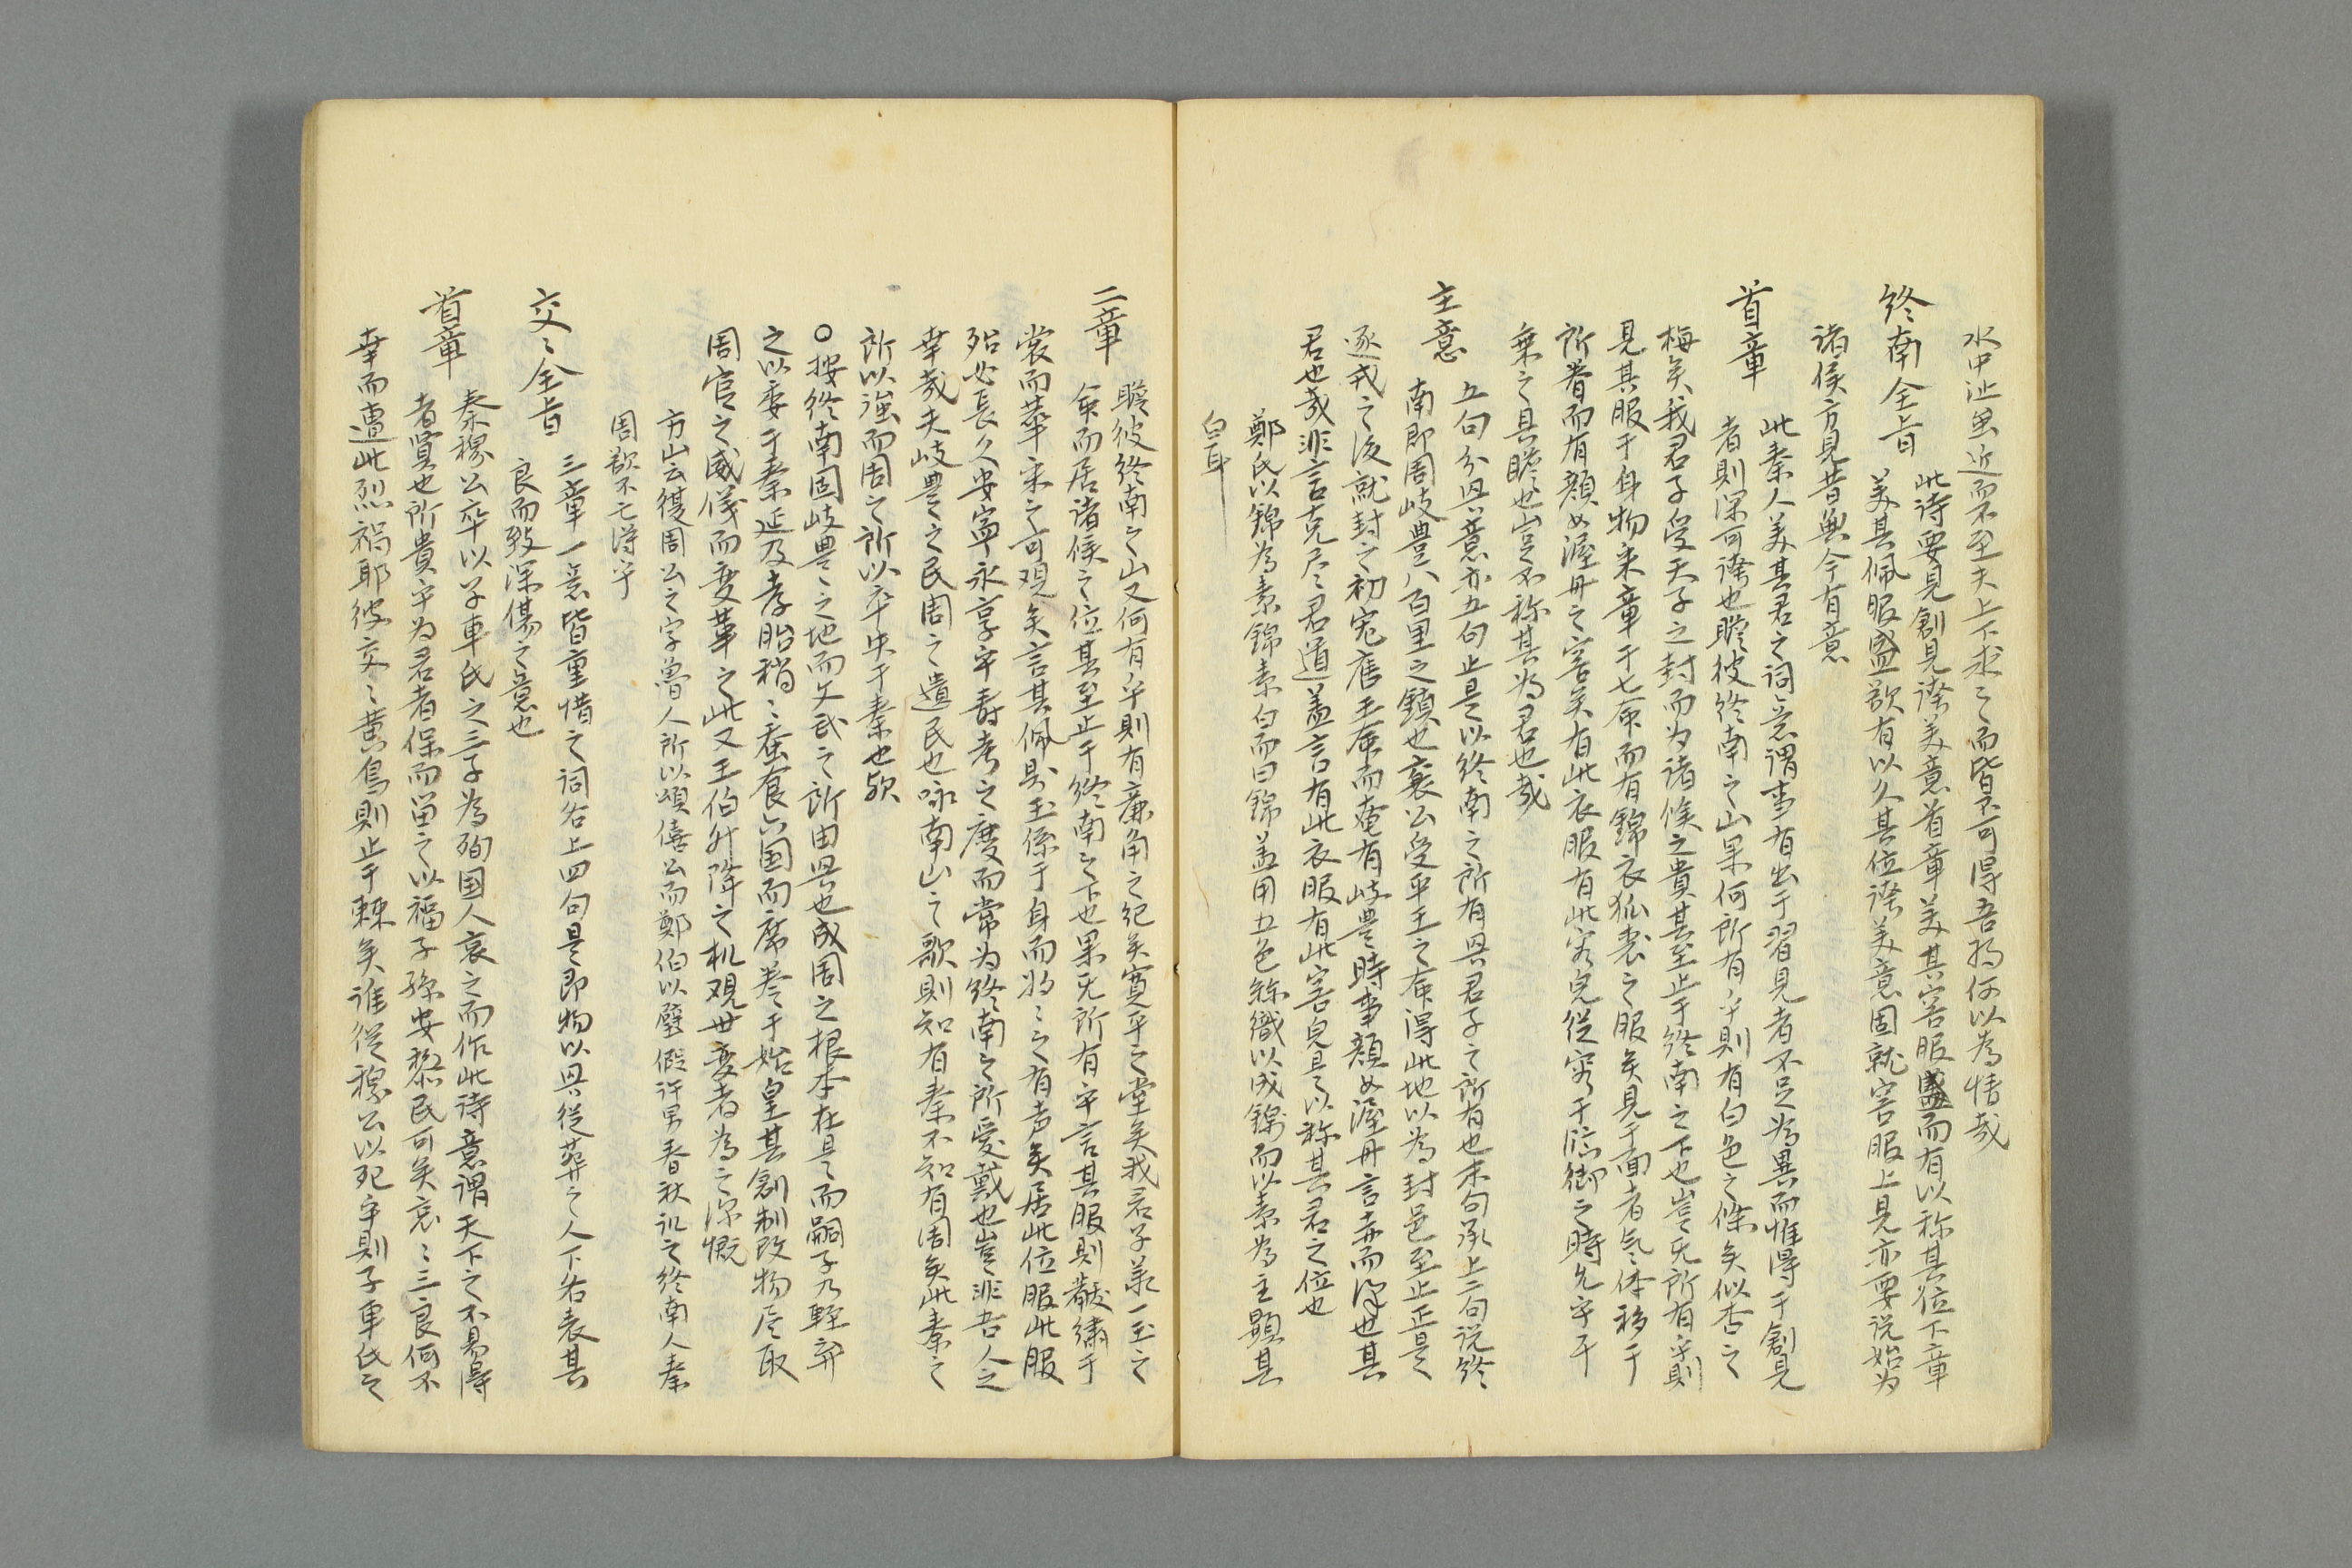 水中沚虽近而不至夫上下求之而皆不可得吾將何以為情哉
終南全旨
此詩要見創見誇美意首章美其容服盛而有以称其位下章
美其佩服盛欲有以久其位誇美意固就容服上見亦要说始为
諸侯方見昔無今有意
首章
此秦人美其君之詞意谓事有出于習見者不足為異而惟得于創見
者則深可誇也瞻彼終南之山果何所有乎則有白色之條矣似杏之
梅矣我君子受天子之封而为诸侯之貴其至止于終南之下也豈无所有乎則
見其服于身物采章于七命而有錦衣狐裘之服矣見于面者气体移于
所養而有顏如渥丹之容矣有此衣服有此容皃從容于臨御之時允乎干
乗之具瞻也豈不称其为君也哉
主意
五句分興意亦五句止是以終南之所有興君子之所有也末句承上二句说終
南即周岐豊八百里之鎮也襄公受平王之命得此地以為封邑至止正是
逐戎之後就封之初寃旧王命而奄有岐豊時事顏如渥丹言赤而澤也其
君也哉非言克尽君道盖言有此衣服有此容皃是以称其君之位也
鄭氏以錦為素錦素白而曰錦盖用五色絲織以成錦而以素为主顕其
白耳
二章
瞻彼終南之山又何有乎則有廉角之紀矣寛平之堂矣我君子承一王之
命而居诸侯之位其至止于終南之下也果无所有乎言其服則黻繍于
裳而華采之可观矣言其佩則玉係于身而将之有声矣居此位服此服
殆必長久安寧永享乎壽考之慶而常为終南之所愛戴也豈非吾人之
幸哉夫岐豊之民周之遺民也咏南山之歌則知有秦不知有周矣此秦之
所以強而周之所以卒失于秦也欤
○按終南固岐豊之地而文武之所由興也成周之根本在是而嗣子乃輕弃
之以委于秦延及孝胎稍〻蚕食六国而席卷于始皇其創制改物尽取
周官之威儀而变革之此又王伯升降之机观世变者為之深慨
方山云復周公之宇魯人所以頌僖公而鄭伯以璧假許男春秋讥之終南人秦
周欲不亡得乎
交〻全旨
三章一意皆重惜之词各上四句是即物以興從葬之人下各表其
良而致深傷之意也
首章
秦穆公卒以子車氏之三子為殉国人哀之而作此诗意谓天下之不易得
者賢也所貴乎为君者保而留之以福子孫安黎民可矣哀〻三良何不
幸而遭此烈祸耶彼交〻黄鳥則止于棘矣谁從穆公以死乎則子車氏之